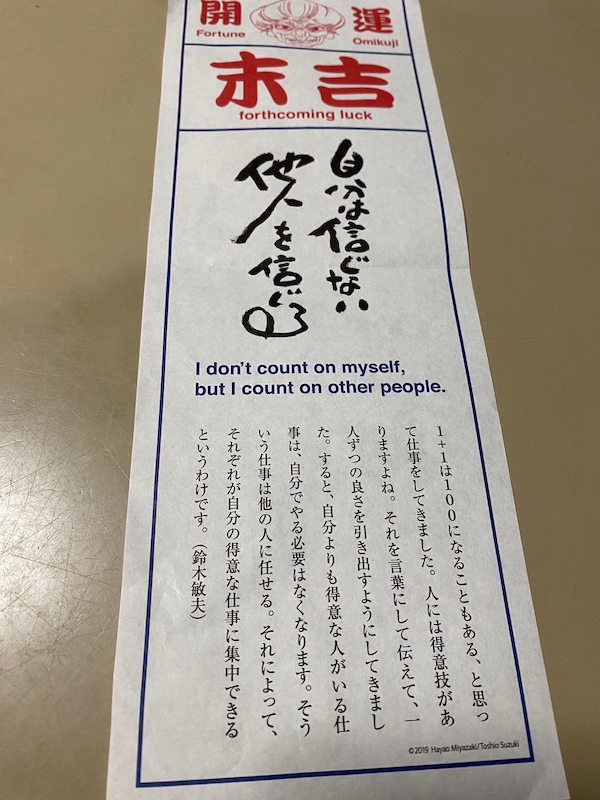 開運
Fortune Omikuji
末吉
forthcoming luck
自分は信じない
他人を信じる
I don't count on myself,
but I count on other people.
1+1は100になることもある、と思っ
て仕事をしてきました。人には得意技があ
りますよね。それを言葉にして伝えて、一
人ずつの良さを引き出すようにしてきまし
た。すると、自分よりも得意な人がいる仕
事は、自分でやる必要はなくなります。そう
いう仕事は他の人に任せる。それによって、
それぞれが自分の得意な仕事に集中できる
というわけです。（鈴木敏夫）
©2019 Hayao Miyazaki/Toshio Suzuki